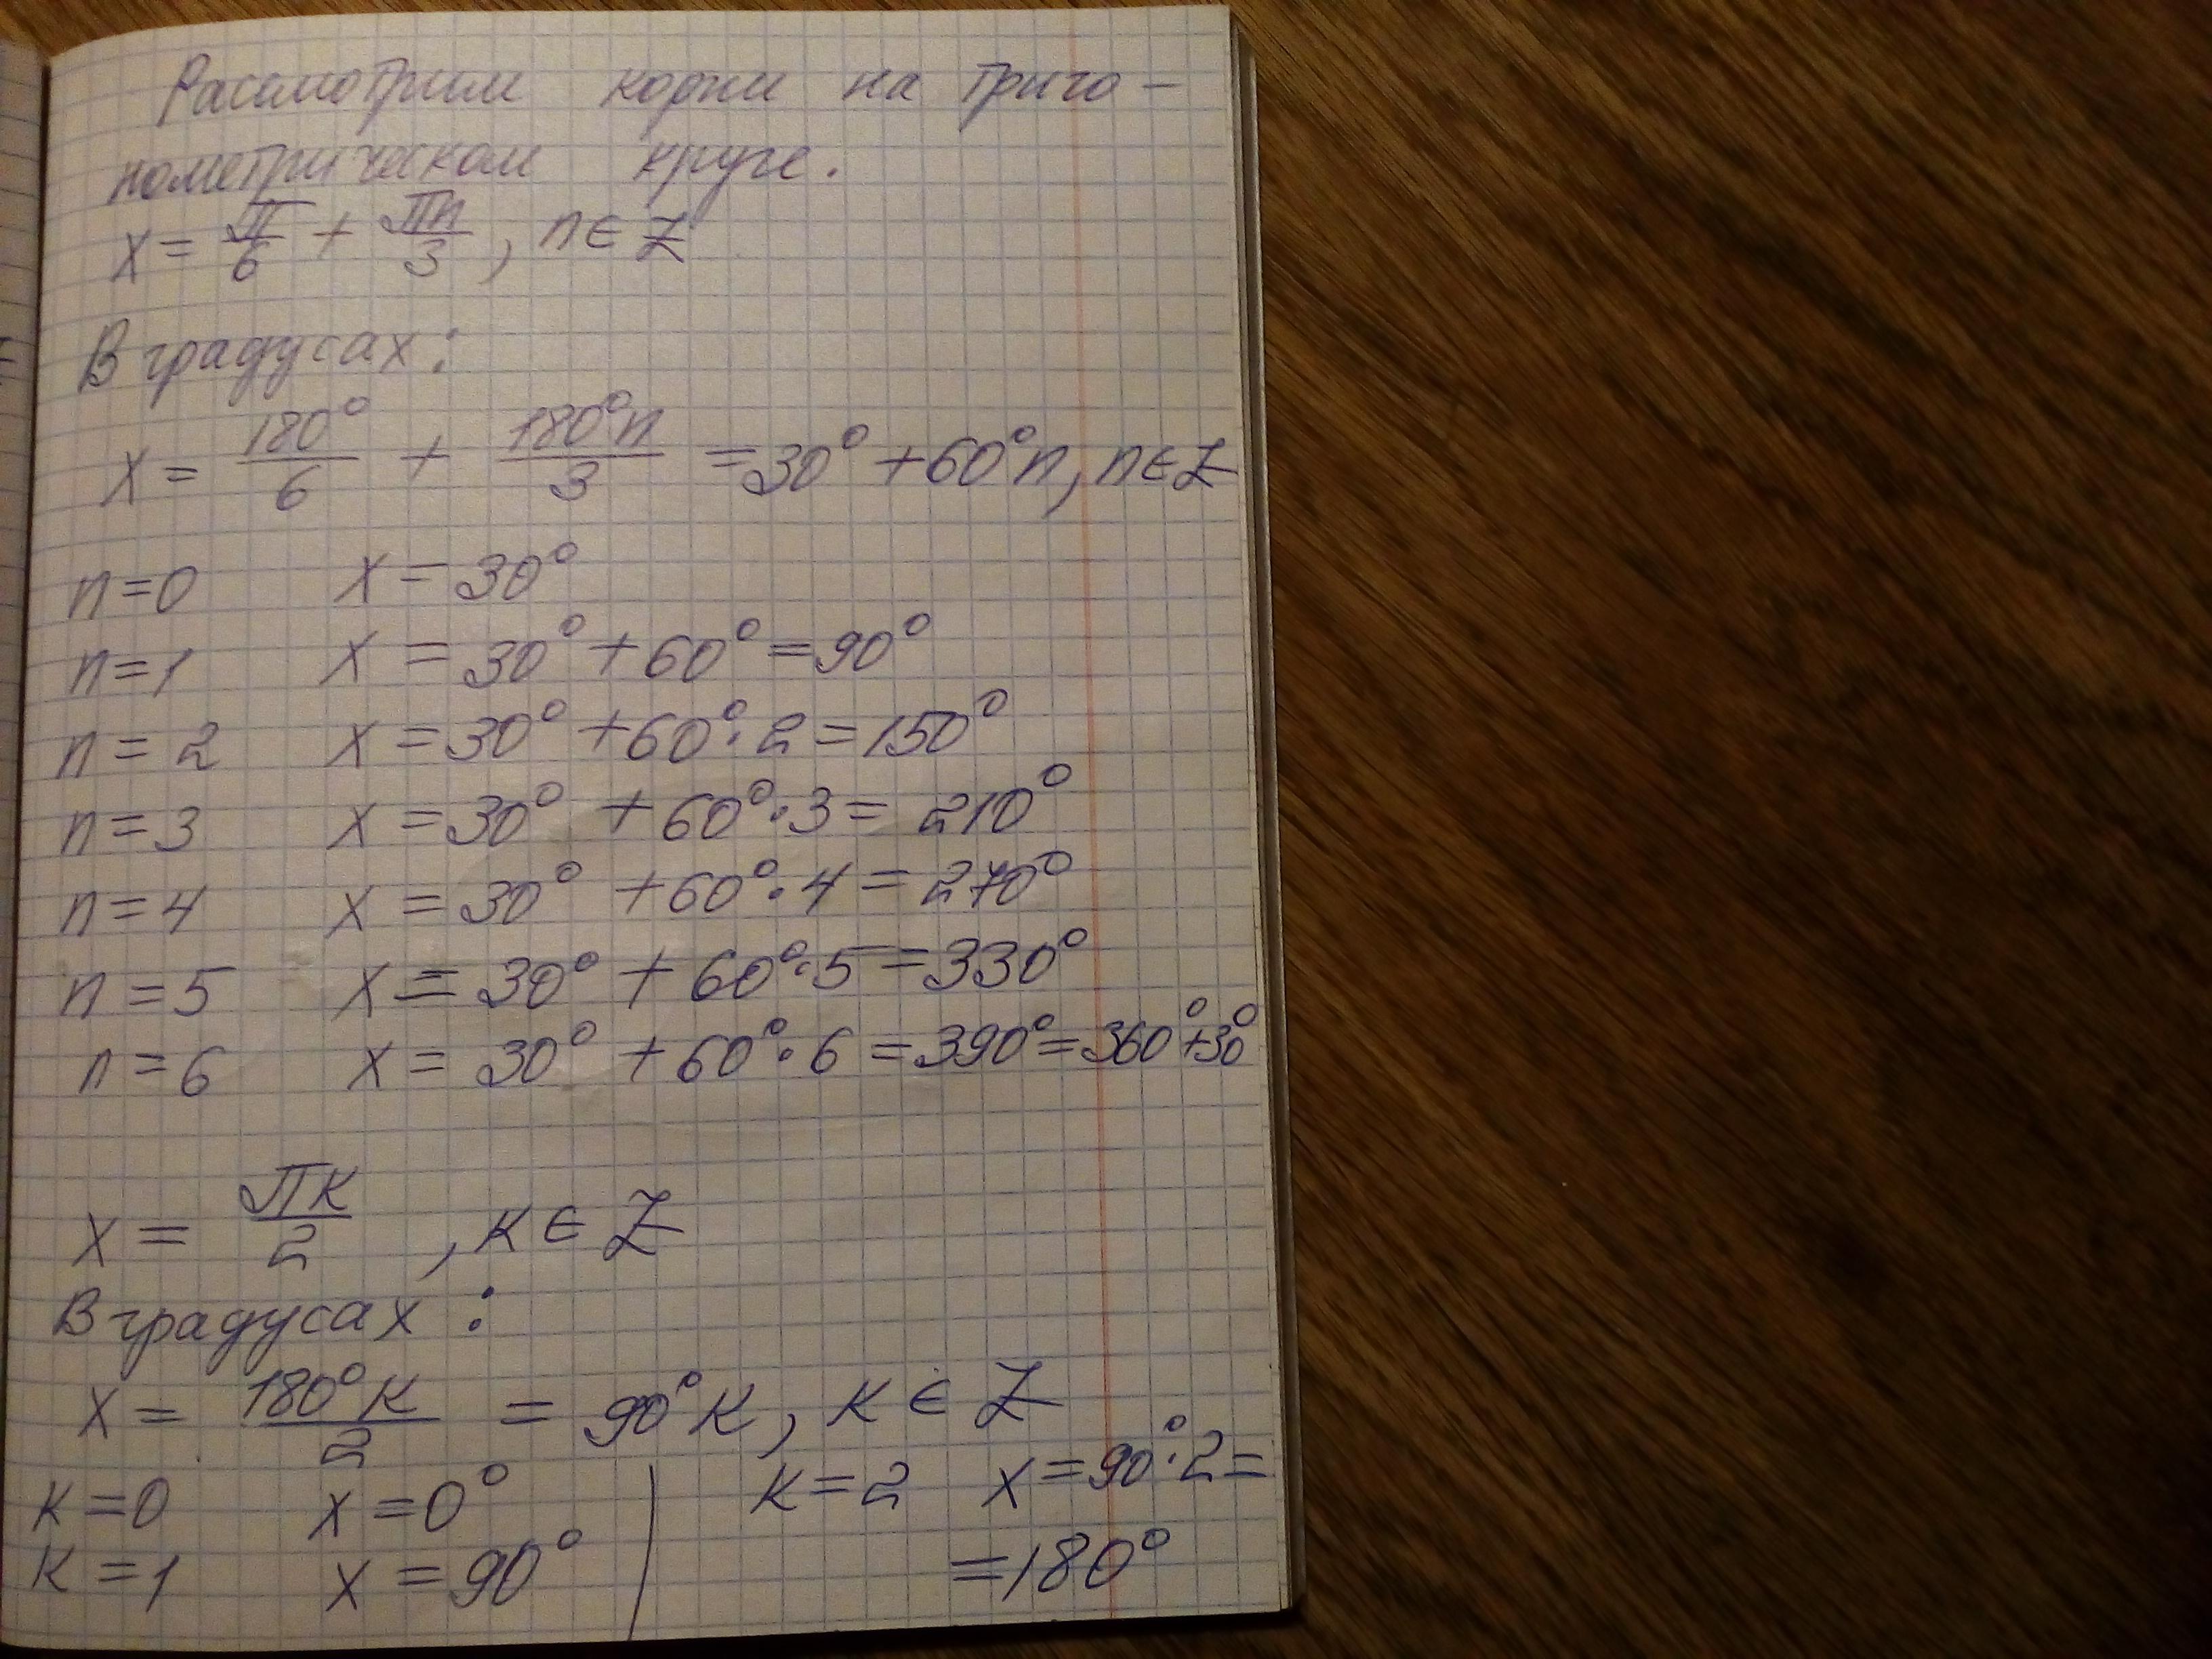 Рассмотрим корни на триго-
нометрическом круге.
x = π/6 + πn/3, n ∈ Z
В градусах:
x = 180°/6 + 180°n/3 = 30° + 60°n, n ∈ Z
n = 0 x = 30°
n = 1 x = 30° + 60° = 90°
n = 2 x = 30° + 60°·2 = 150°
n = 3 x = 30° + 60°·3 = 210°
n = 4 x = 30° + 60°·4 = 270°
n = 5 x = 30° + 60°·5 = 330°
n = 6 x = 30° + 60°·6 = 390° = 360° + 30°
x = πк/2, к ∈ Z
В градусах:
x = 180°к/2 = 90°к, к ∈ Z
к = 0 x = 0°
к = 1 x = 90°
к = 2 x = 90°·2 =
= 180°